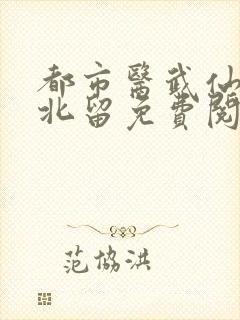 都市醫武仙
北留免費閱
范協洪